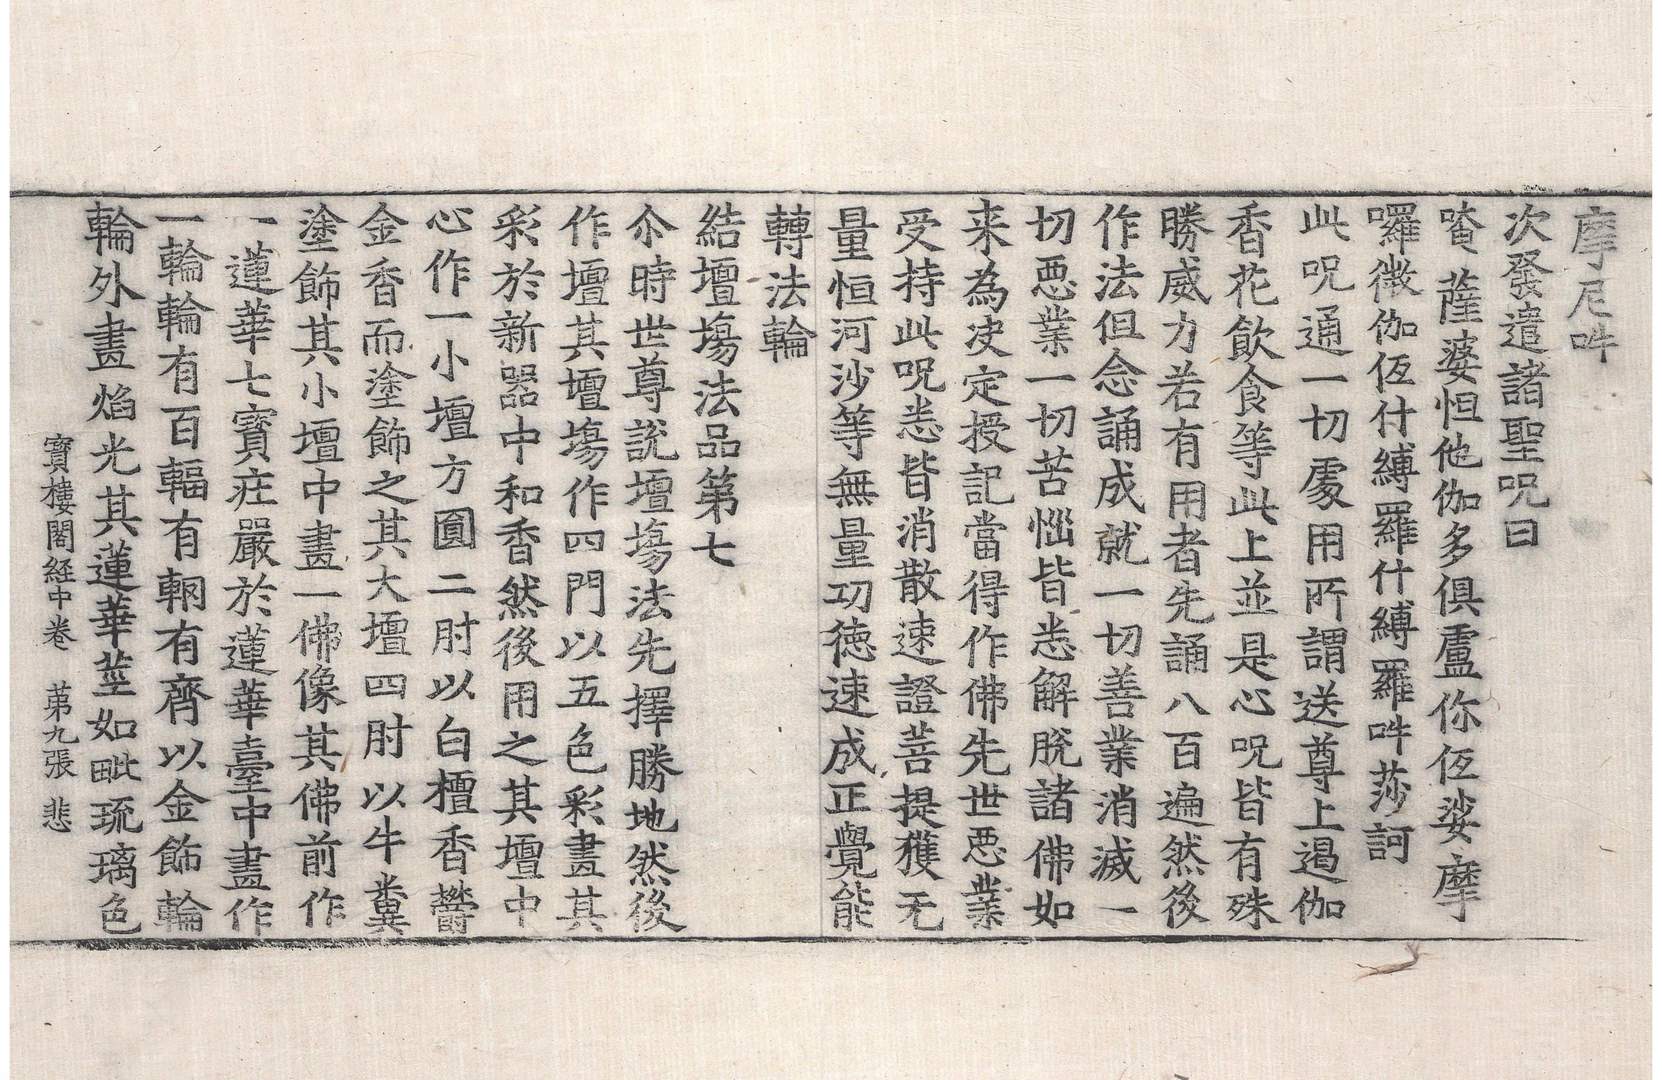 摩尼吽
次發遣諸聖呪曰
唵薩婆怛他伽多俱盧你佉娑摩
囉微伽佉什縛羅什縛羅吽莎訶
此呪通一切處用所謂送尊上遏伽
香花飲食等此上並是心呪皆有殊
勝威力若有用者先誦八百遍然後
作法但念誦成就一切善業消滅一
切惡業一切苦惱皆悉解脫諸佛如
来為決定授記當得作佛先世惡業
受持此呪悉皆消散速證菩提獲无
量恒河沙等無量功德速成正覺能
轉法輪
結壇塲法品第七
尒時世尊說壇塲法先擇勝地然後
作壇其壇塲作四門以五色彩畫其
彩於新器中和香然後用之其壇中
心作一小壇方圓二肘以白檀香欝
金香而塗飾之其大壇四肘以牛糞
塗飾其小壇中畫一佛像其佛前作
一蓮華七寶莊嚴於蓮華臺中畫作
一輪輪有百輻有輞有齊以金飾輪
輪外畫焰光其蓮華莖如毗琉璃色
寶樓閣経中卷　苐九張　悲